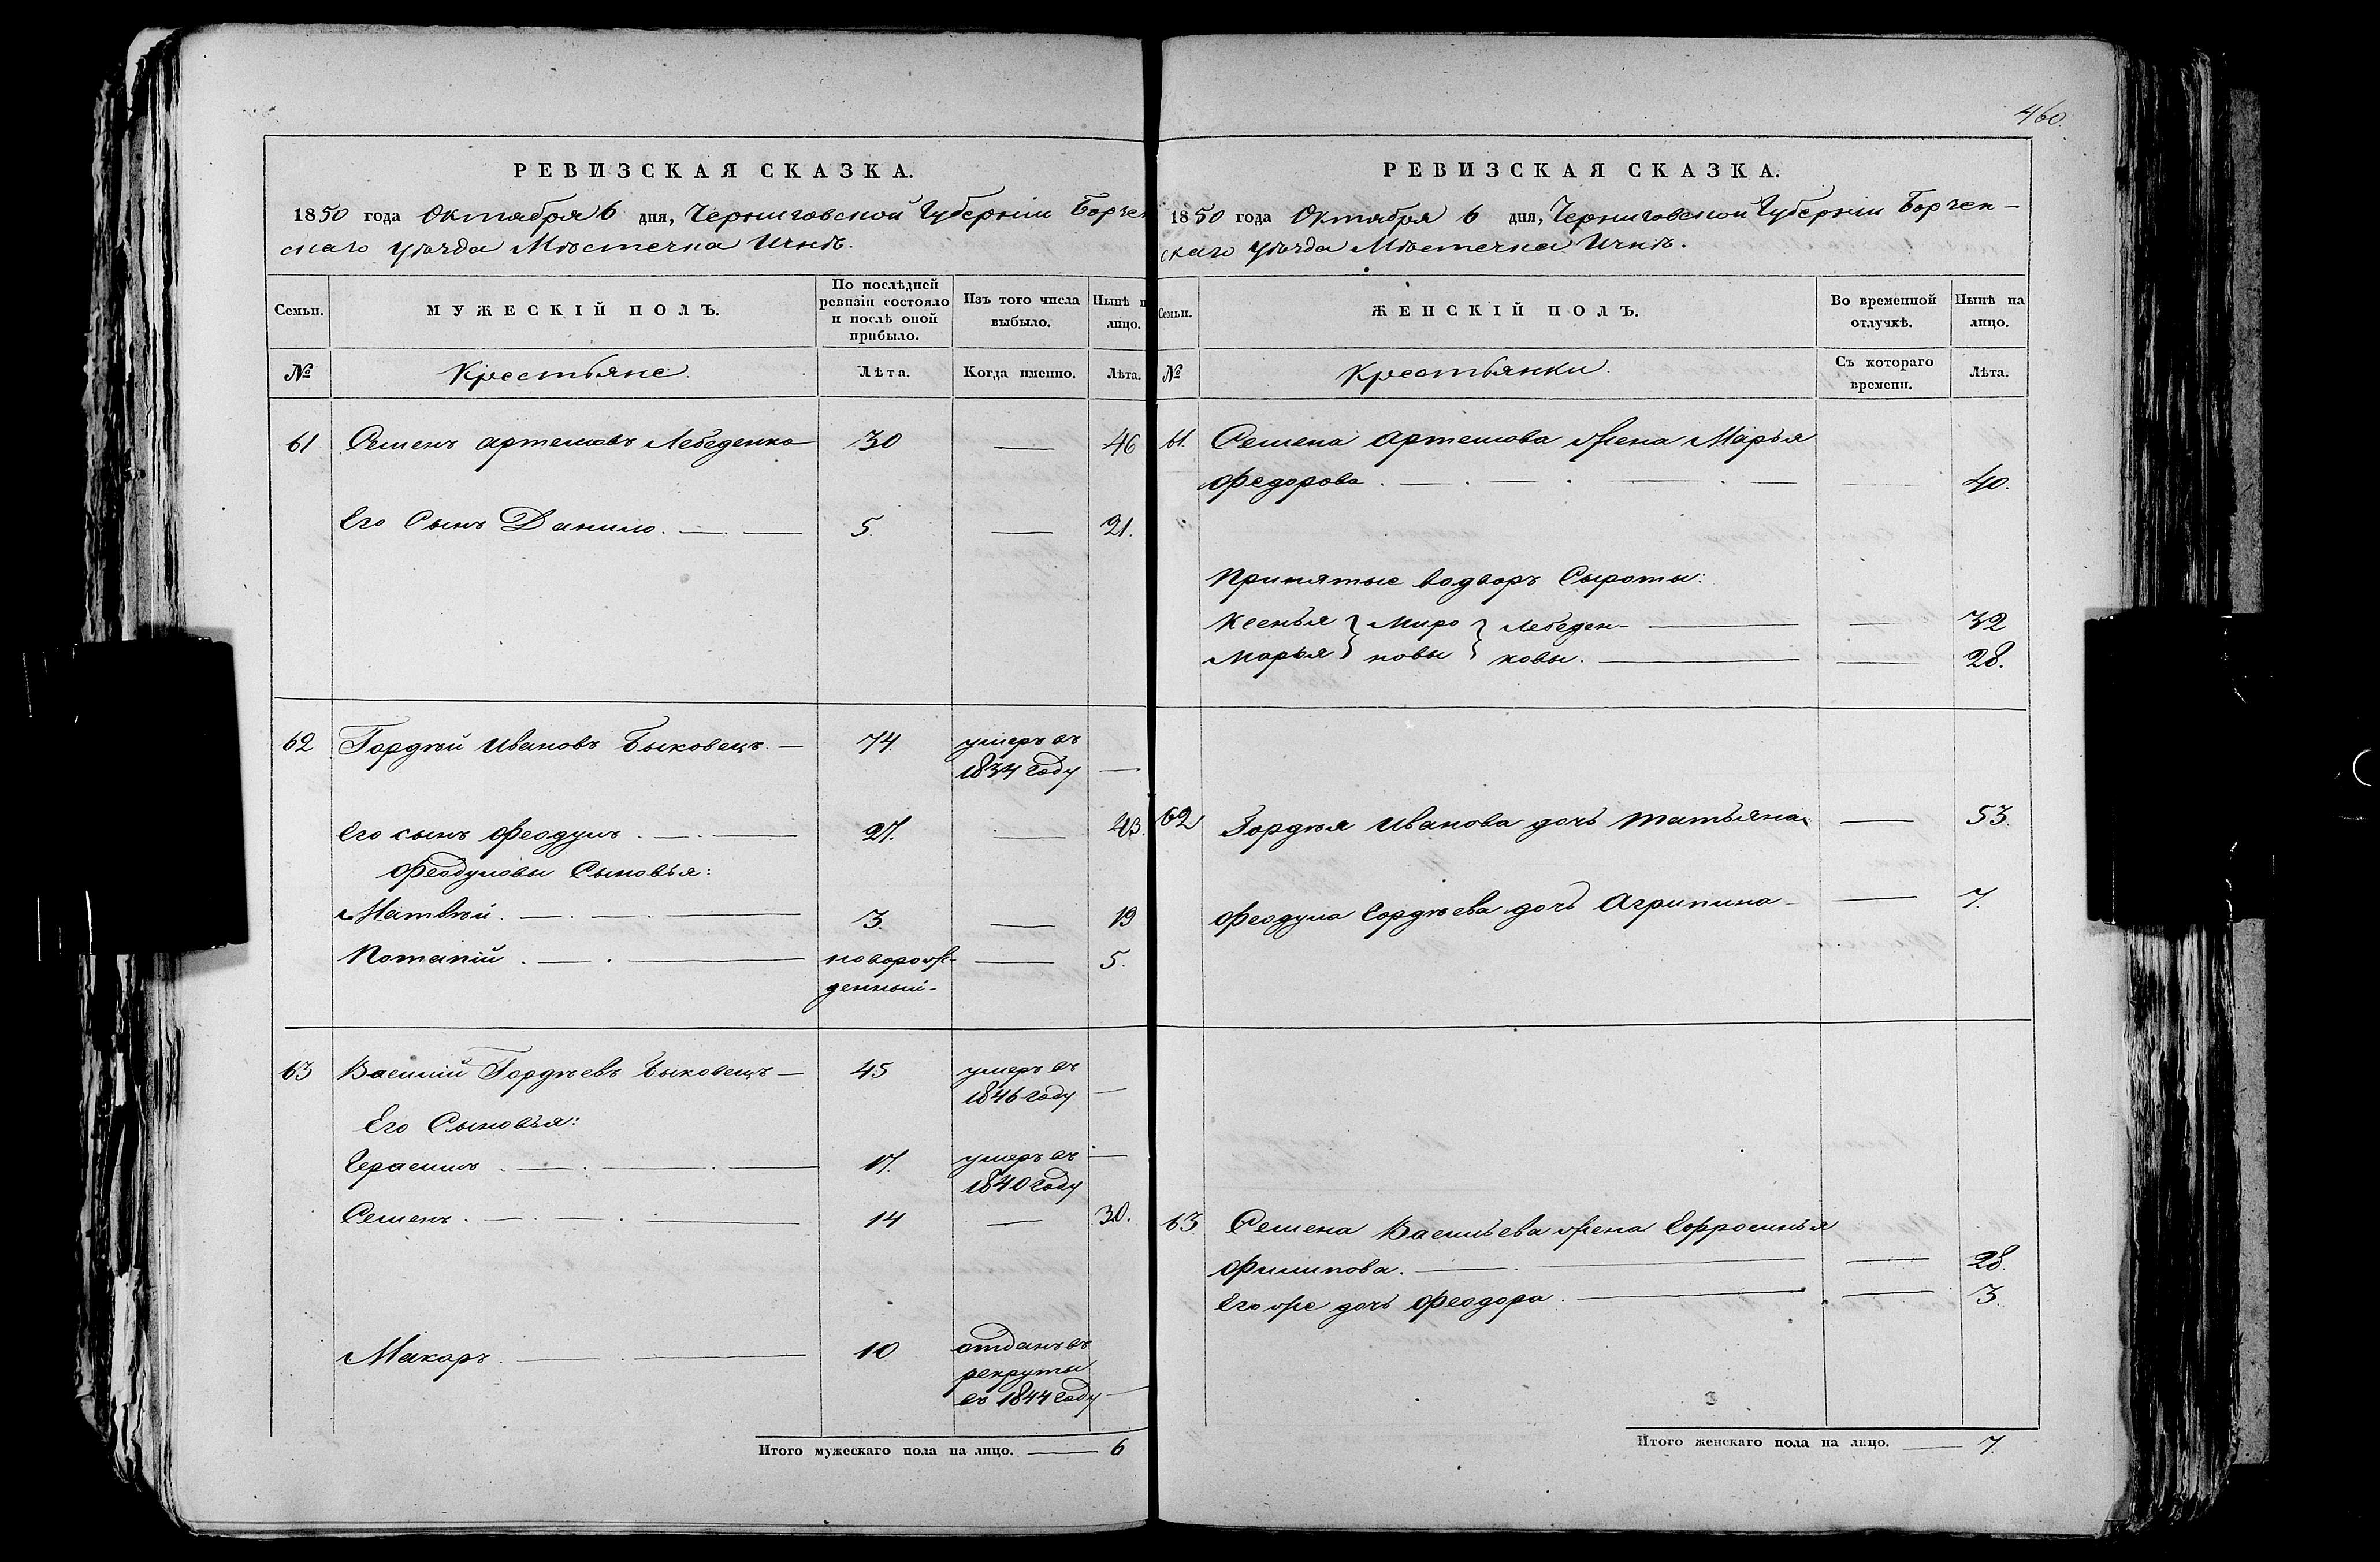 РЕВИЗСКАЯ СКАЗКА.
1850 года Октября 6 дня, Черниговской Губерніи Борзен
скаго уѣзда Мѣстечка Ичнѣ.
Семьи.
МУЖЕСКІЙ ПОЛЪ.
По послѣдней
ревизіи состояло
и послѣ оной
прибыло.
Изъ того числа
выбыло.
Нынѣ н
лицо.
№
Крестьяне.
Лѣта.
Когда именно.
Лѣта.
61 Семенъ Артемовъ Лебеденко 30 — 46
Его Сынъ Данило. — 5. — 21.
62 Гордѣй Ивановъ Быковецъ. — 74. умеръ въ
1834 году —
Его сынъ Феодулъ. — 27. — 43.
Феодуловы Сыновья:
Матвѣй. — 3. — 19
Потапій. — новорож- — 5.
денный-
63 Василій Гордѣевъ Быковецъ — 45 умеръ въ
1846 году —
Его Сыновья:
Герасимъ. — 17. умеръ въ —
1840 году
Семенъ. — 14 — 30.
Макаръ. — 10 отданъ въ
рекруты
въ 1844 году —
Итого мужескаго пола на лицо. — 6
460.
РЕВИЗСКАЯ СКАЗКА.
1850 года Октября 6 дня, Черниговской Губерніи Борзен-
скаго уѣзда Мѣстечка Ичнѣ.
Семьи.
ЖЕНСКІЙ ПОЛЪ.
Во временной
отлучкѣ.
Нынѣ на
лицо.
№
Крестьянки.
Съ котораго
времени.
Лѣта.
61. Семена Артемова жена Марья
Федорова. — 40.
Принятые водворъ Сыроты:
Ксенья } Миро } Лебеден- — 32
Марья } новы } ковы. — 28.
62 Гордѣя Иванова дочь Татьяна — 53.
Феодула Гордѣева дочь Агрипина — 7.
63. Семена Васильева жена Евфросинья
Филипова. — 28.
Его же дочь Феодора. — 3.
Итого женскаго пола на лицо. — 7.